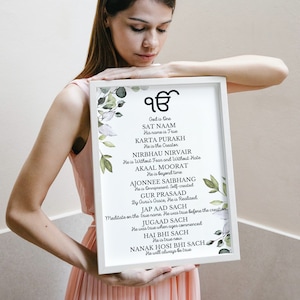 ੴ
God is One
SAT NAAM
His name is True
KARTA PURAKH
He is the Creator
NIRBHAU NIRVAIR
He is Without Fear and Without Hate
AKAAL MOORAT
He is beyond time
AJONNEE SAIBHANG
He is Omnipresent, Self-created
GUR PRASAAD
By Guru's Grace, He is Realised
JAP AAD SACH
Meditate on the true name, He was true before the
JUGAAD SACH
He was true when ages commenced
HAI BHI SACH
He is true now
NANAK HOSI BHI SACH
He will always be true